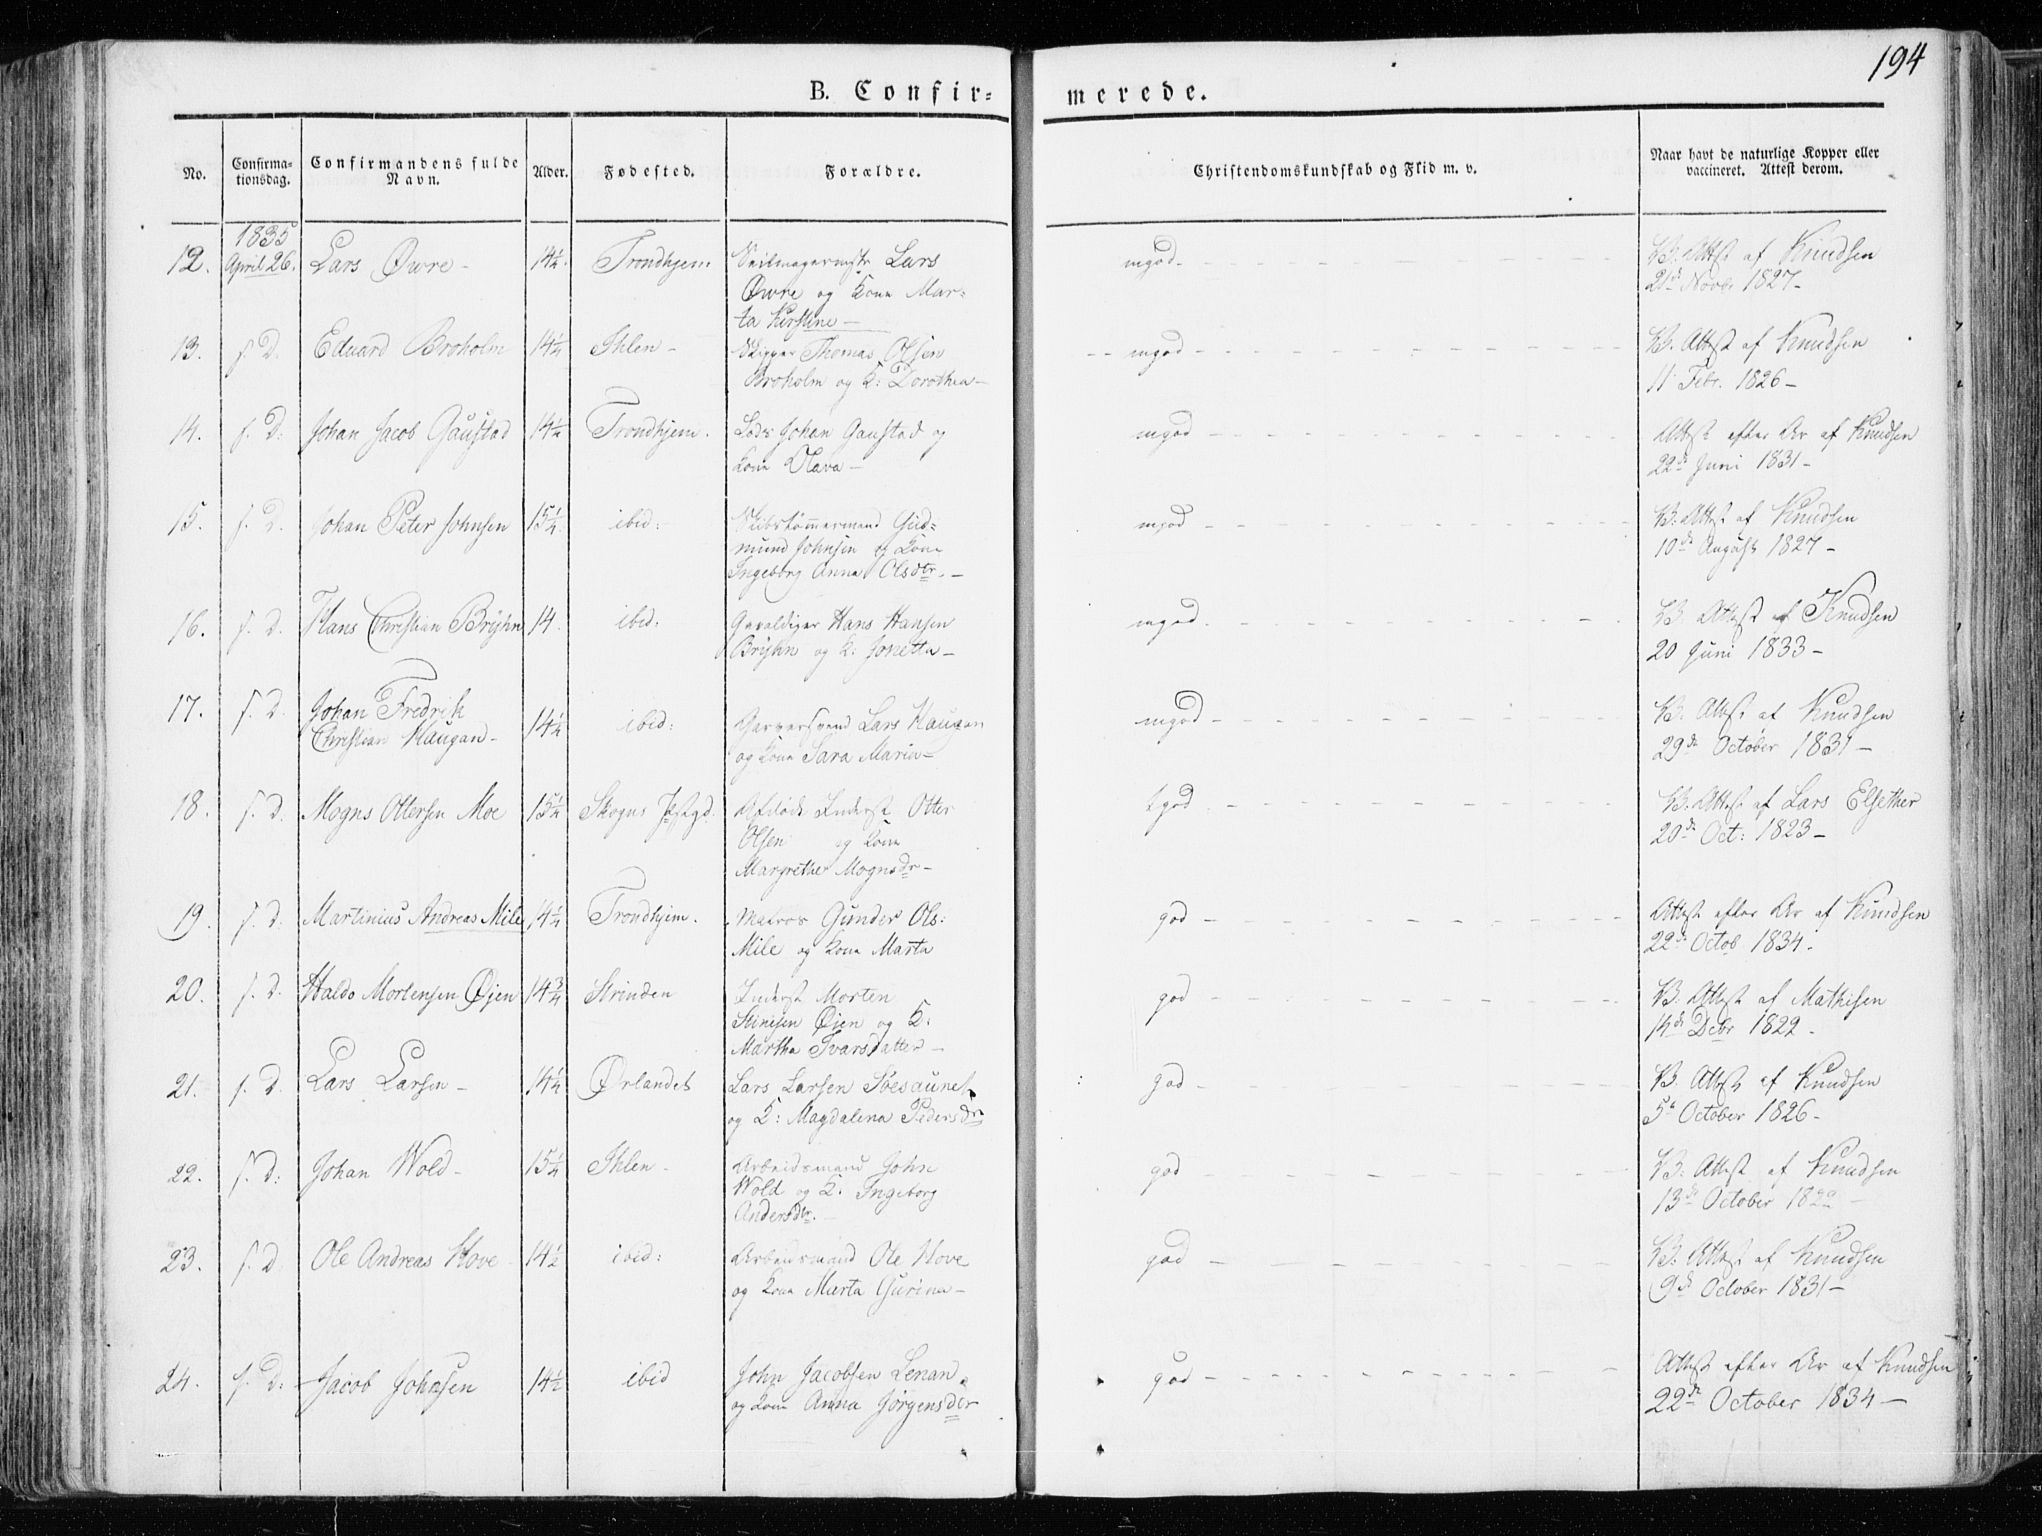 194
B. Confir-
merede.
No.
Confirma-
tionsdag.
Confirmandens fulde
Navn.
Alder.
Fødested.
Forældre.
Christendomskundskab og Flid m. v.
Naar havt de naturlige Kopper eller
vaccineret. Attest derom.
1835
12. April 26. Lars Øwre - 14¼. Trondhjem. Seilmagermstr Lars
Øwre og Kone Mar-
ta Kirstine -
mgod.
V: Attest af Knudsen
21de Novbr 1827 -
13. s. D. Eduard Broholm 14¼ Ihlen - Skipper Thomas Olsen
Broholm og K: Dorothea -
mgod
V. Attest af Knudsen
11 Febr. 1826 -
14. s. D: Johan Jacob Gaustad 14½ Trondhjem. Lods Johan Gaustad og
Kone Olava -
mgod
Attest efter Ar af Knudsen
22de Juni 1831 -
15. s. D. Johan Peter Johnsen 15¼ ibid: Skibstømmermand Gud-
mund Johnsen og Kone
Ingeborg Anna Olsdtr. -
mgod
V: Attest af Knudsen
10de August 1827 -
16. s. D. Hans Christian Brÿhn 14. ibid: Hans Hansen
Brÿhn og K: Jonetta -
mgod.
V. Attest af Knudsen
20 Juni 1833 -
17. s. D. Johan Fredrik
Christian Haugan - 14½ ibid: Garversvend Lars Haugan
og Kone Sara Maria -
mgod
V. Attest af Knudsen
29de October 1831 -
18. s. D. Mogns Ottersen Moe 15½ Skogns Præstgd. Afdøde Inderst Otter
Olsen og Kone
Margrethe Mognsdr -
tgod
V: Attest af Lars Elsether
20de Oct: 1823 -
19. s. D. Martinius Andreas Mile 14¼ Trondhjem. Matros Gunder Ols:
Mile og Kone Marta
god
Attest efter Ar af Knudsen
22de Octob 1834.
20. s. D. Haldo Mortensen Øjen 14¾ Strinden Inderst Morten
Øjen og K:
Martha Ivarsdatter -
god
V. Attest af Mathisen
14de Debr 1822 -
21. s. D. Lars Larsen - 14¼ Ørlandet Lars Larsen
og K: Magdalena Pedersdr
god
V. Attest af Knudsen
5te October 1826 -
22. s. D: Johan Wold - 15¼ Ihlen - Arbeidsmand John
Wold og K. Ingeborg
Andersdtr. -
god
V. Attest af Knudsen
13de October 1822 -
23. s. D. Ole Andreas Hove 14½ ibid: Arbeidsmand Ole Hove
og Kone Marta Gurina -
god
V: Attest af Knudsen
9de October 1831 -
24. s. D: Jacob Johnsen 14½ ibid John Jacobsen Lenan
og Kone Anna Jörgensdtr
god
Attest efter Ar af Knudsen
22de October 1834 -